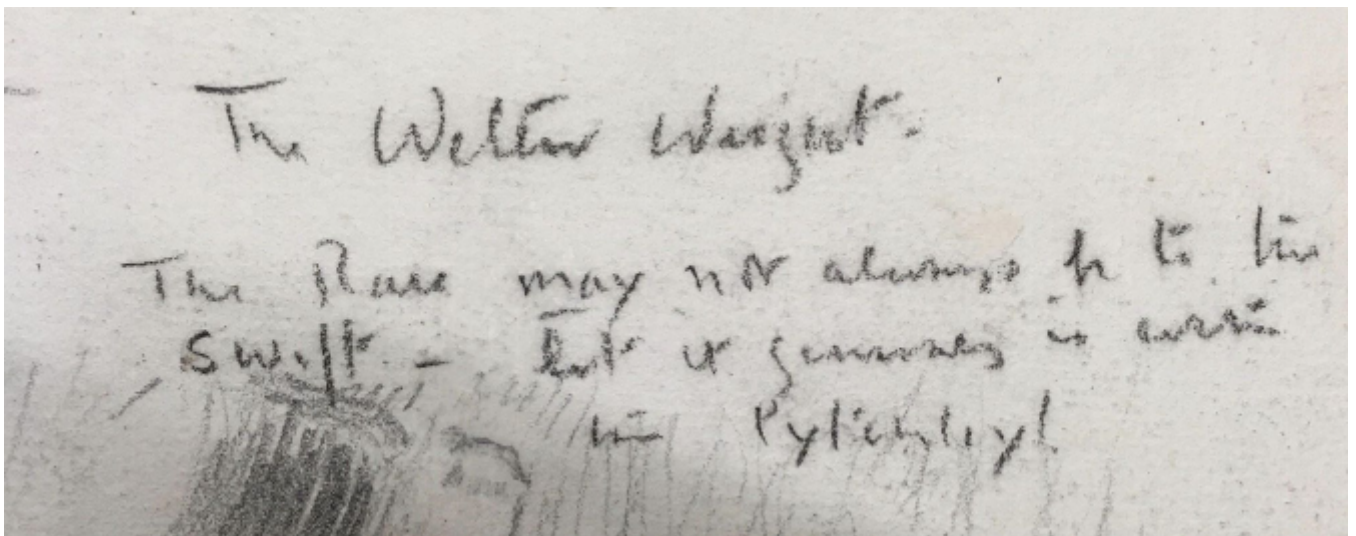 The Welter Weight.
The Race may not always be to the
Swift - but it generally is with
the Pytchley!